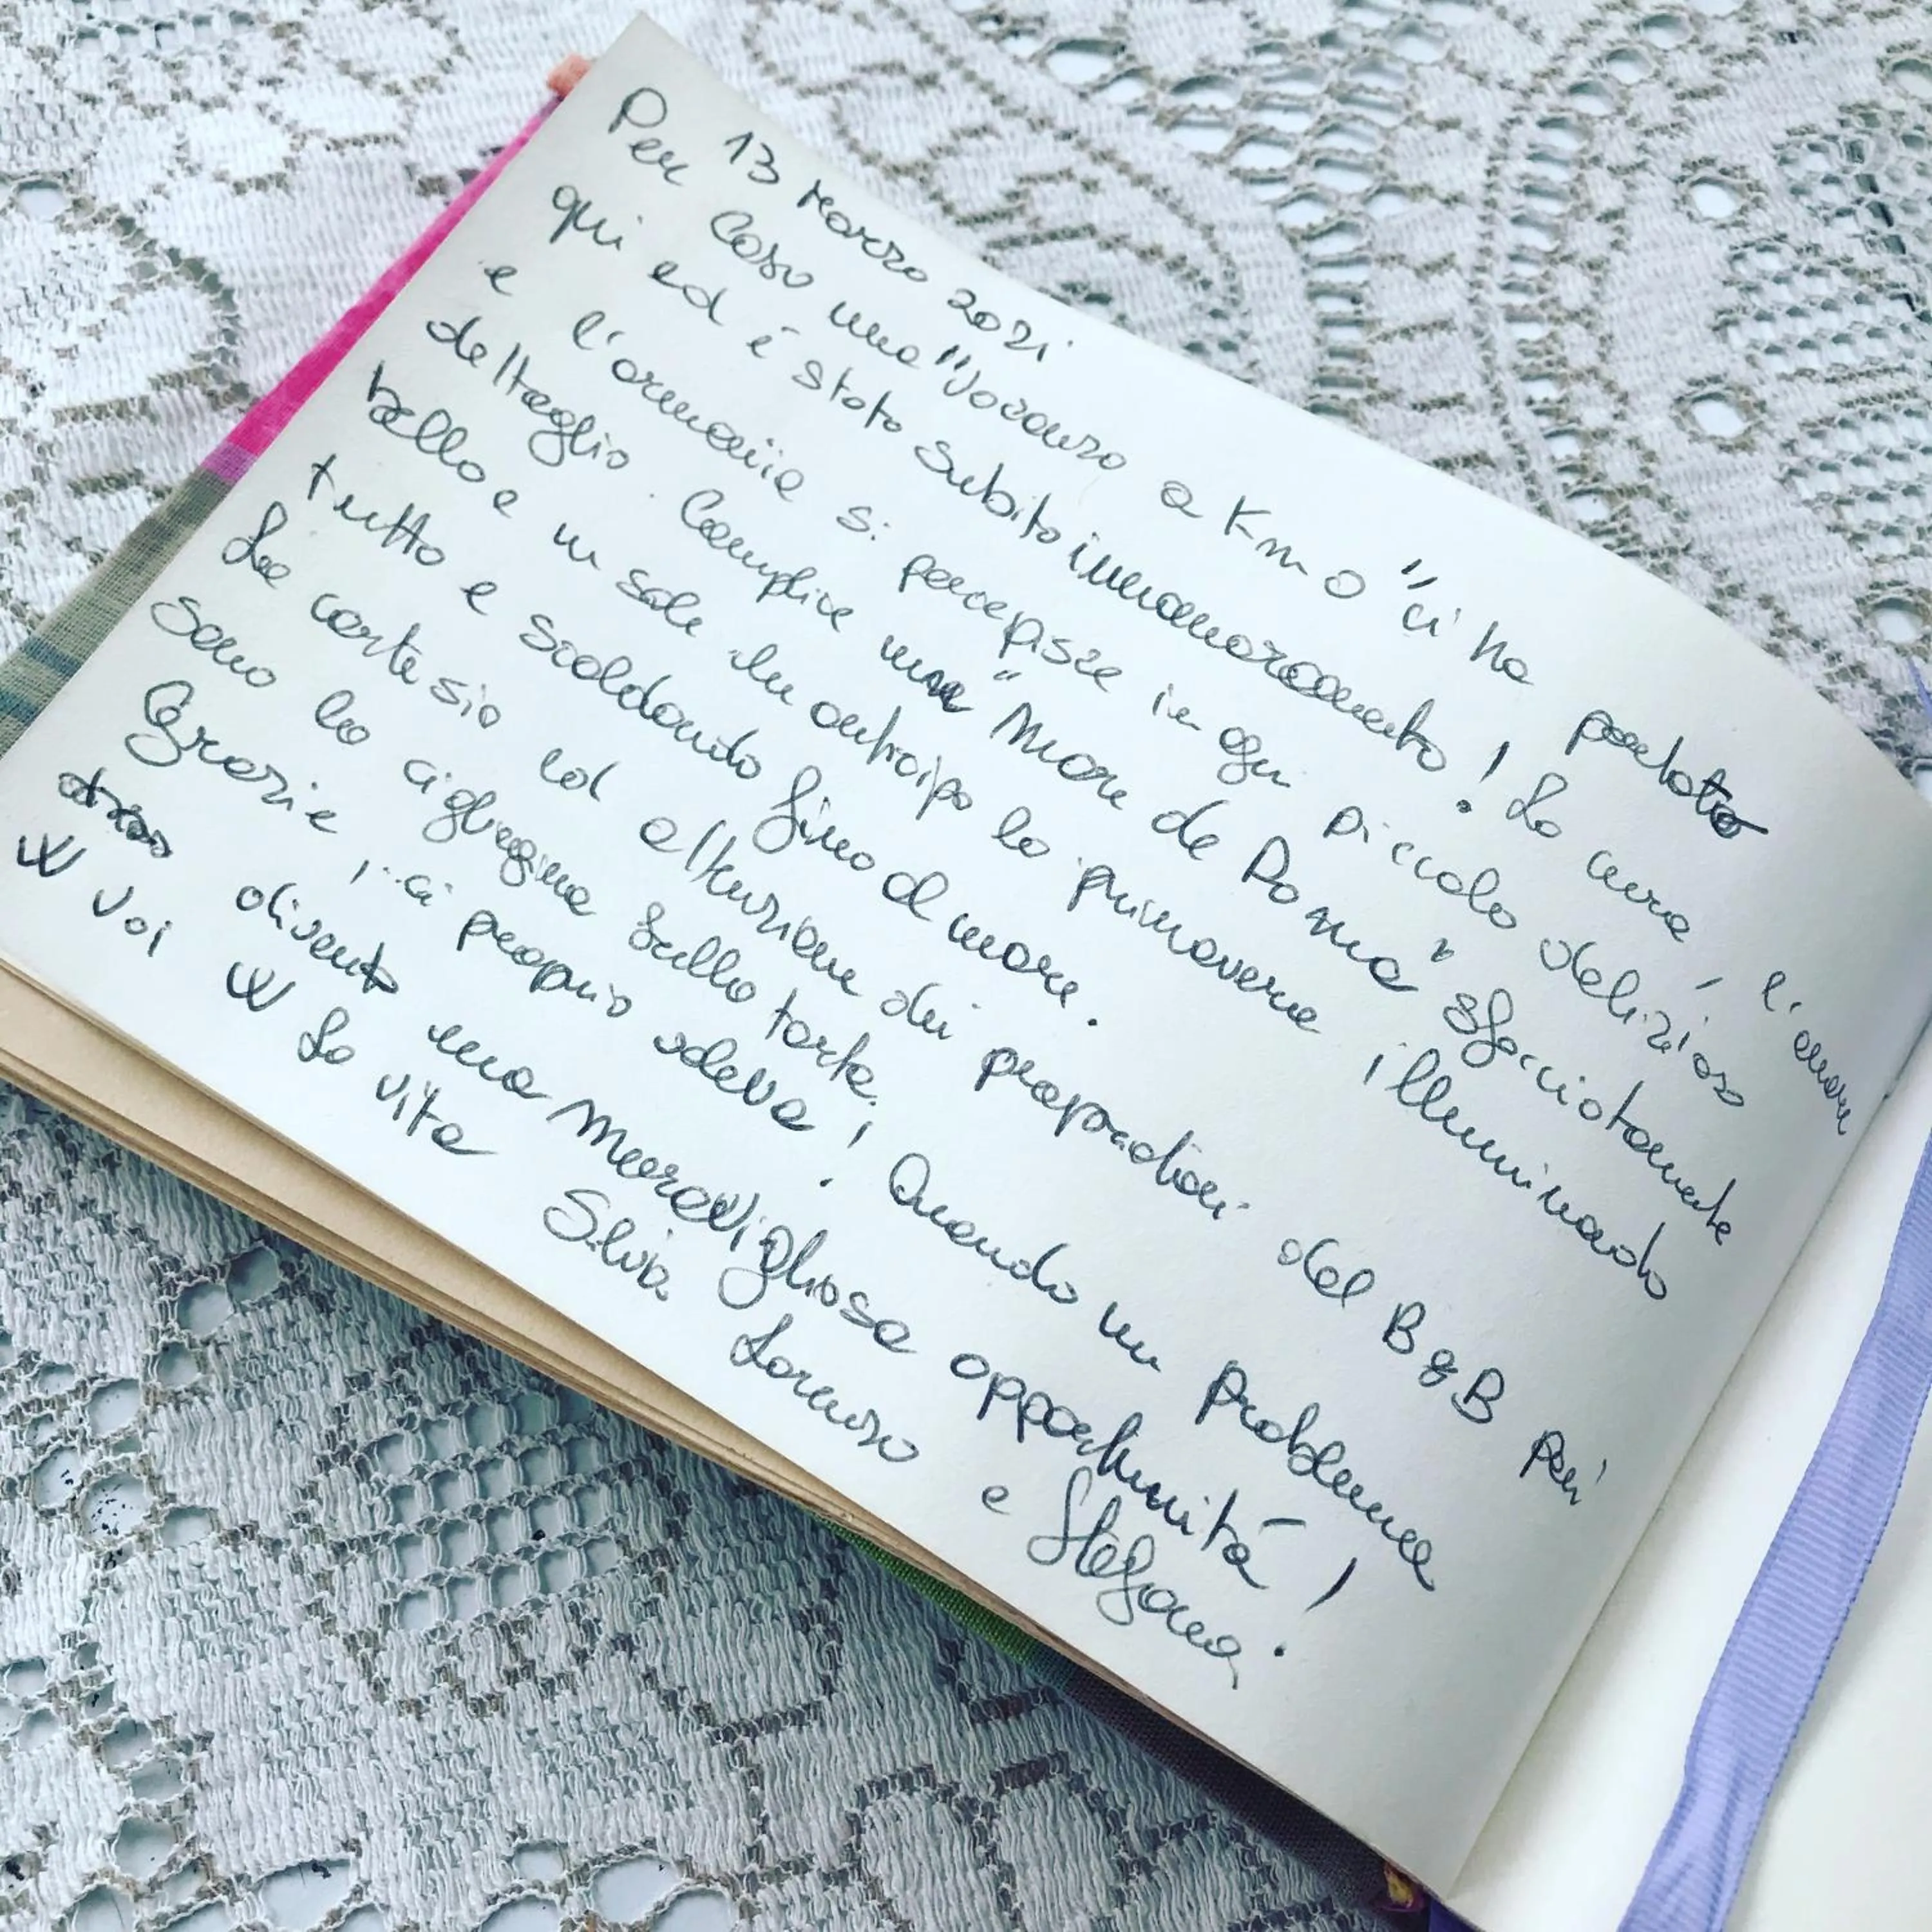 13 Marzo 2021
Per Caso una "vacanza a Km 0" ci ha portato
qui ed é stato subito innamoramento! La cura, l'amore
e l'armonia si percepisce in ogni piccolo delizioso
dettaglio. Complice una "Mare de Doma" sfacciatamente
bella e un sole che anticipa la primavera illuminando
tutto e scaldando fino al mare.
La cortesia ed attenzione dei proprietari del B&B poi
sono la ciliegina sulla torta.
Grazie, ci proprio voleva! Quando un problema
diventa una meravigliosa opportunitá!
W Voi W La vita
Silvia Lorenzo e Stefania